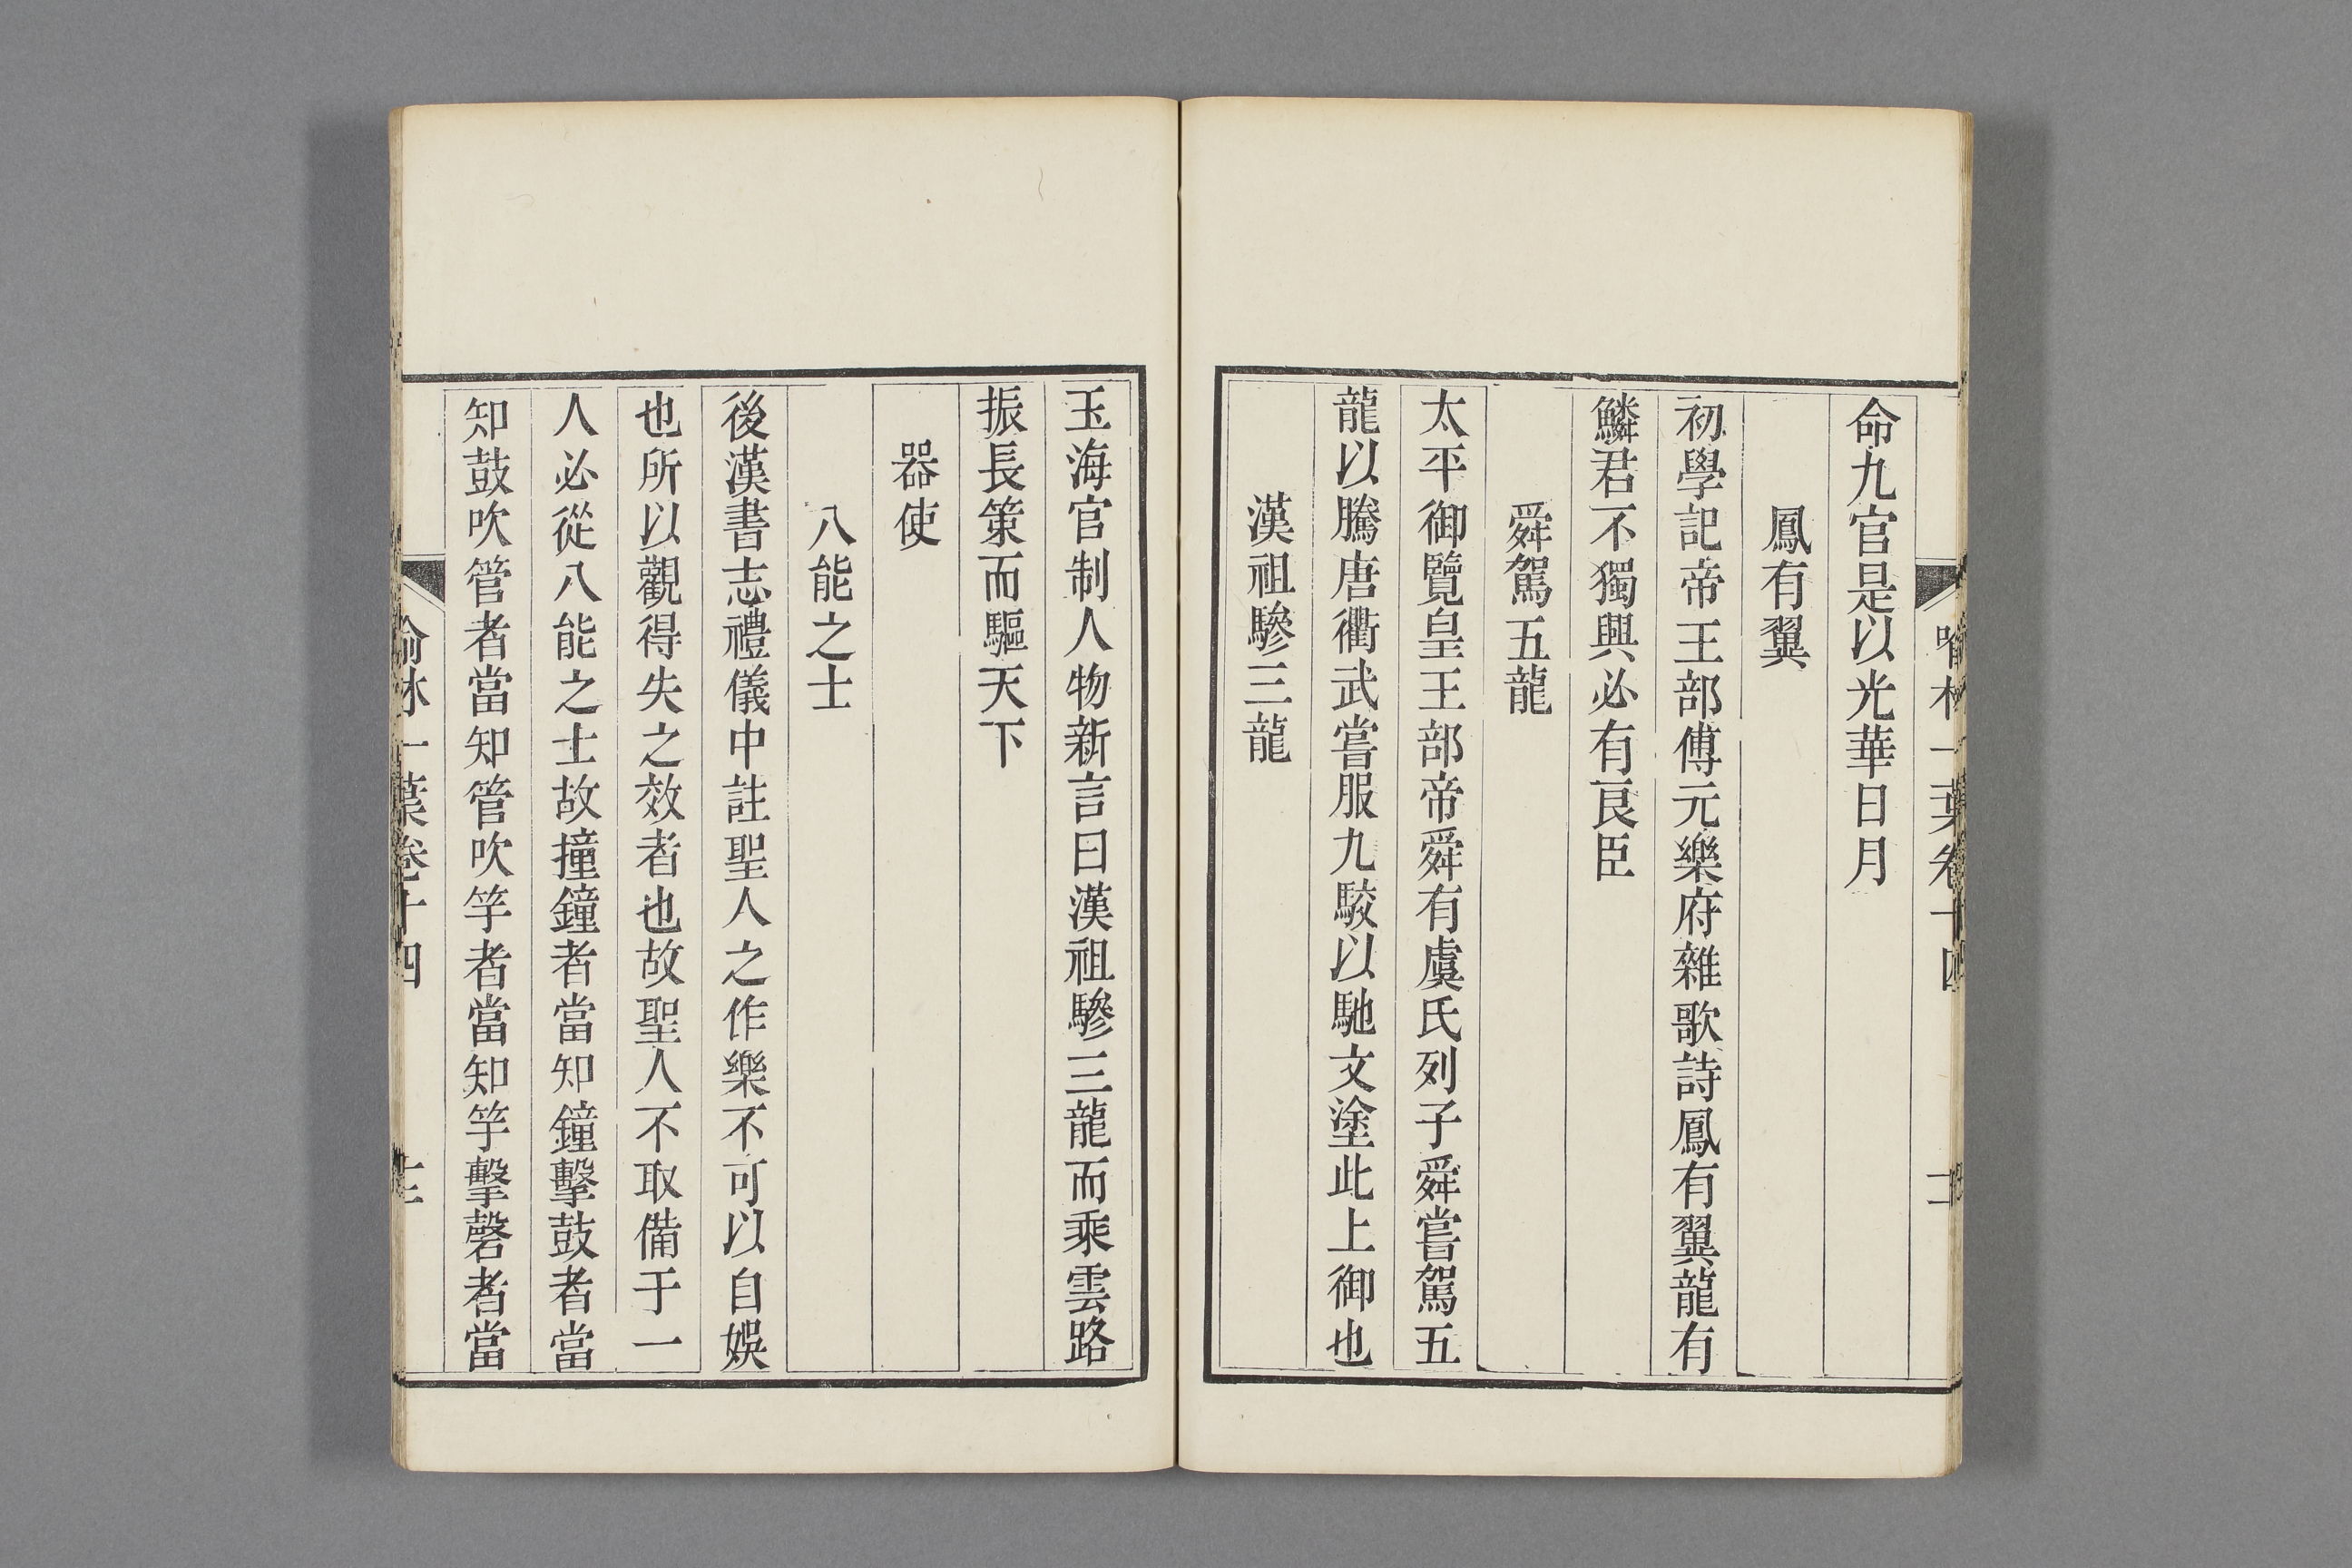 命九官是以光華日月
鳳有翼
初學記帝王部傅元樂府雜歌詩鳳有翼龍有
鱗君不獨興必有良臣
舜駕五龍
太平御覽皇王部帝舜有虞氏列子舜嘗駕五
龍以騰唐衢武嘗服九駮以馳文塗此上御也
漢祖驂三龍
玉海官制人物新言曰漢祖驂三龍而乘雲路
振長策而驅天下
器使
八能之士
後漢書志禮儀中註聖人之作樂不可以自娛
也所以觀得失之效者也故聖人不取備于一
人必從八能之士故撞鐘者當知鐘擊鼓者當
知鼓吹管者當知管吹竽者當知竽擊磬者當